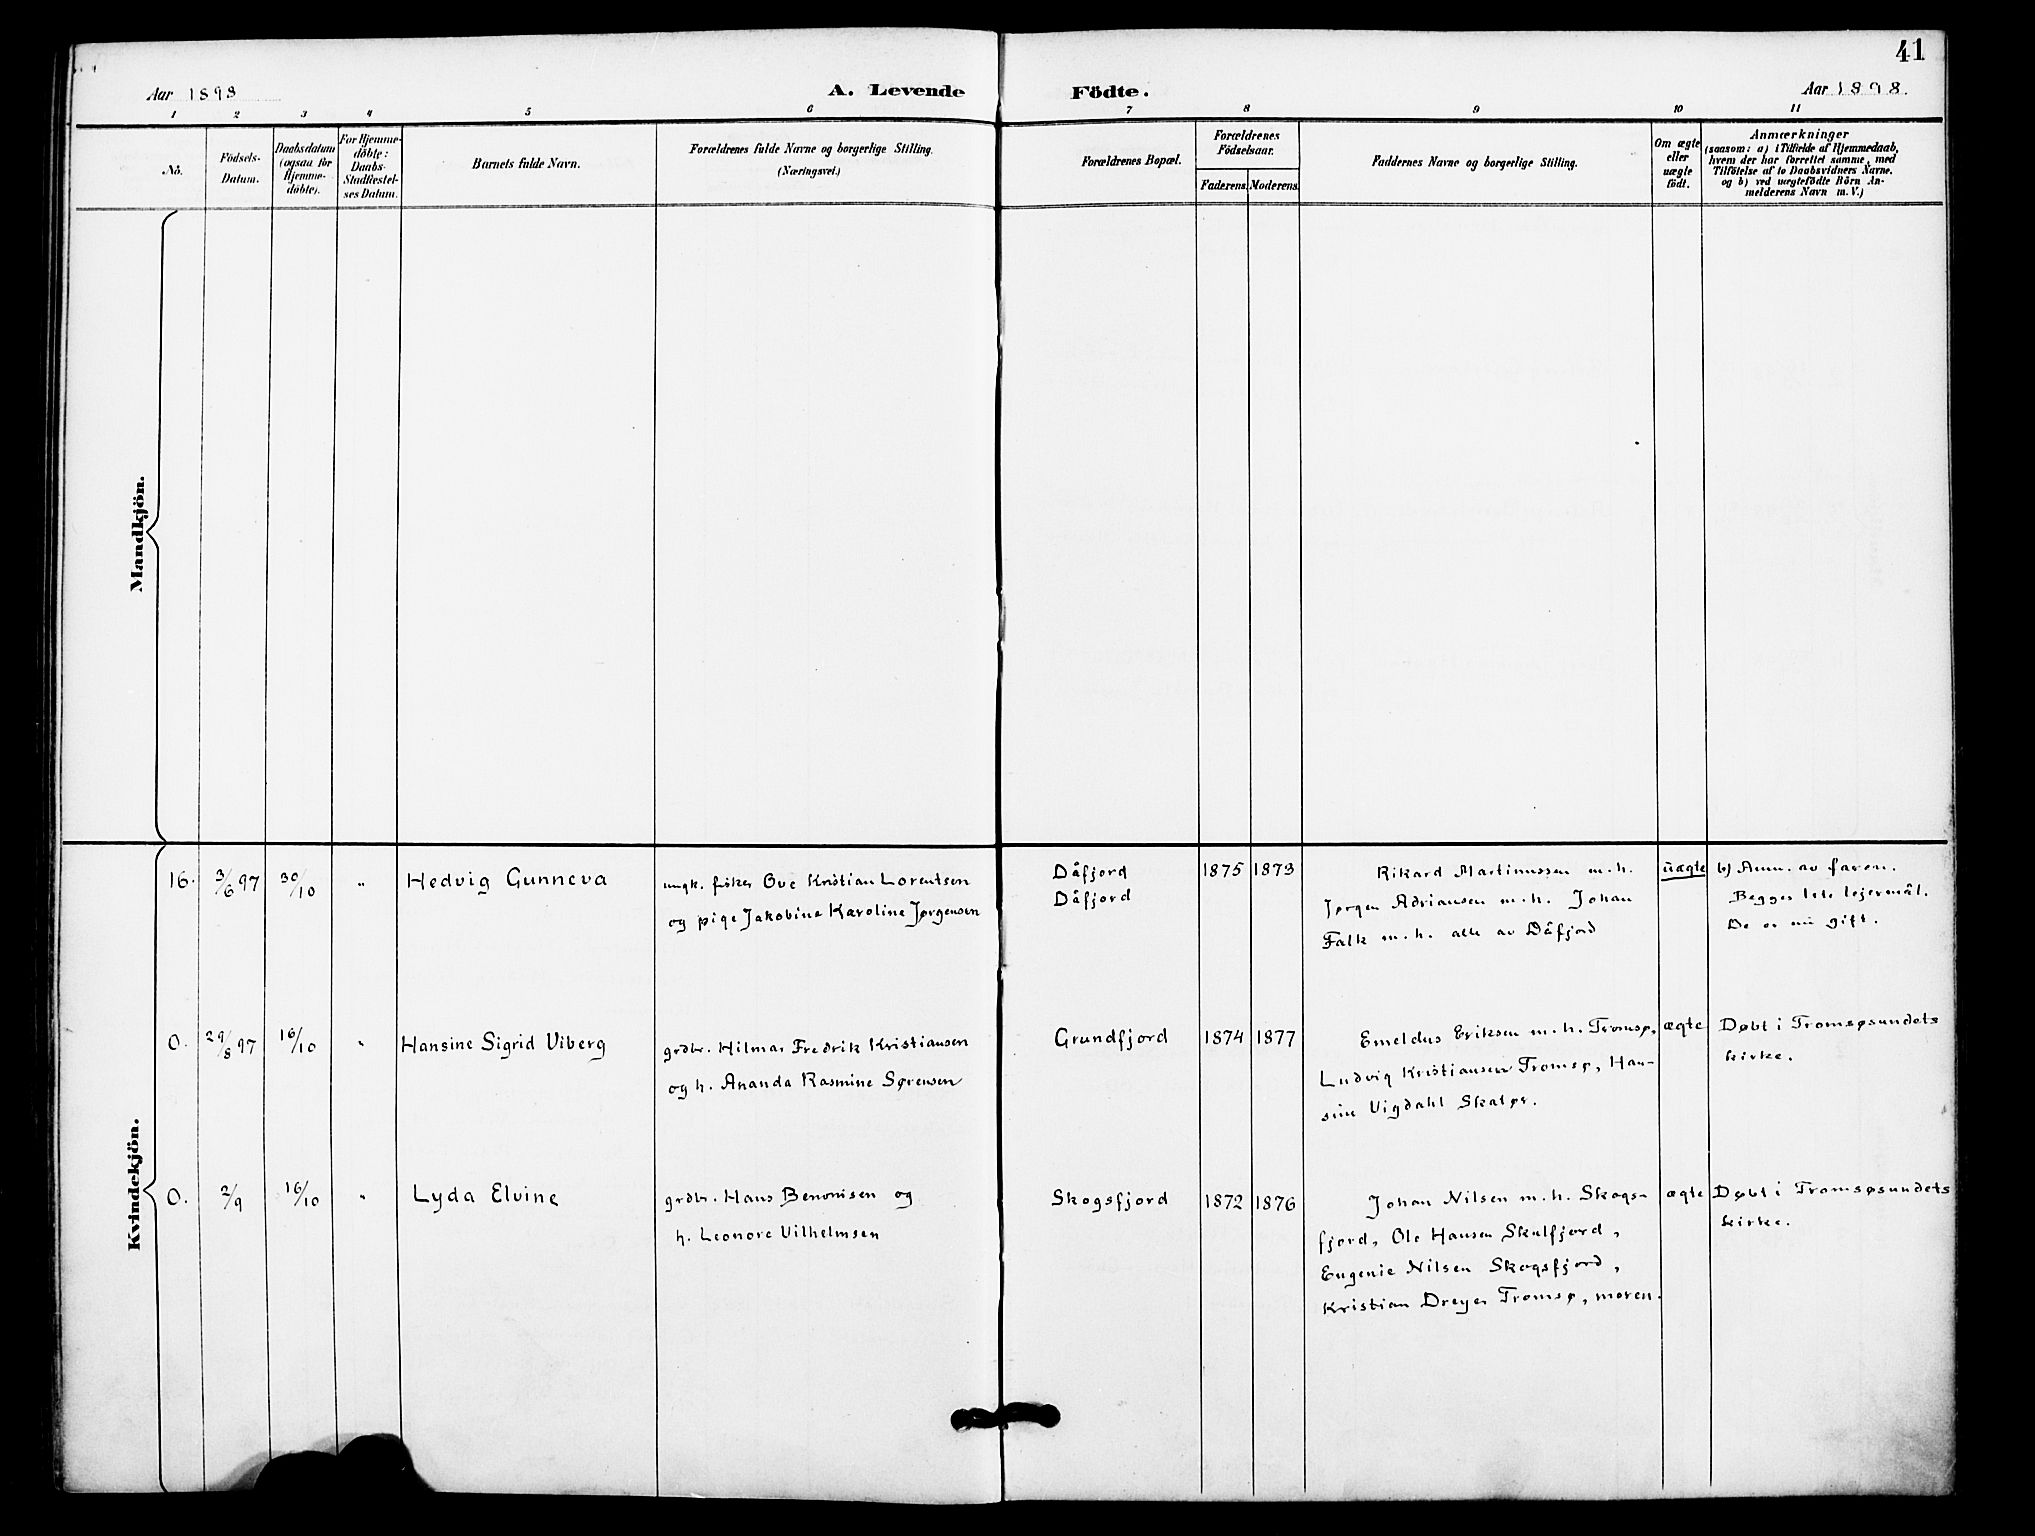 41
Aar 1898
A. Levende Födte.
Aar 1898.
1 2 3 4 5 6 7 8 9 10 11
No.
Födsels-
Datum.
Daabsdatum
(ogsaa for
Hjemme-
döbte).
For Hjemme-
döbte:
Daabs-
Stadfæstel-
ses Datum.
Barnets fulde Navn.
Forældrenes fulde Navne og borgerlige Stilling.
(Næringsvei.)
Forældrenes Bopæl.
Forældrenes
Födselsaar.
Faderens. Moderens.
Faddernes Navne og borgerlige Stilling.
Om ægte
eller
uægte
födt.
Anmærkninger
(saasom: a) i Tilfælde af Hjemmedaab,
hvem der har forrettet samme, med
Tilföielse af to Daabsvidners Navne.
og b) ved uægtefödte Börn An-
melderens Navn m. V.)
Mandkjön.
Kvindekjön.
16. 3/6 97 30/10 " Hedvig Gunneva
ungk. fisker Ove Kristian Lorentsen
og pige Jakobine Karoline Jørgensen
Dåfjord
Dåfjord
1875 1873
Rikard Martinussen m.h.
Jørgen Adriansen m.h. Johan
Falk m.h. alle av Dåfjord
uægte
b) Anm. av faren.
Begges 1ste lejermål.
De er nu gift.
0. 29/8 97 16/10 " Hansine Sigrid Viberg
grdbr. Hilmar Fredrik Kristiansen
og h. Ananda Rasmine Sørensen
Grundfjord
1874 1877
Emeldus Eriksen m.h. Tromsø,
Ludvig Kristiansen Tromsø, Han-
sine Vigdahl Skatør.
ægte
Døbt i Tromsøsundets
kirke.
0. 2/9 16/10 " Lyda Elvine
grdbr. Hans Benonisen og
h. Leonore Vilhelmsen
Skogsfjord
1872 1876
Johan Nilsen m.h. Skogs-
fjord, Ole Hansen Skulfjord,
Eugenie Nilsen Skogsfjord,
Kristian Dreyer Tromsø, moren.
ægte
Døbt i Tromsøsundets
kirke.